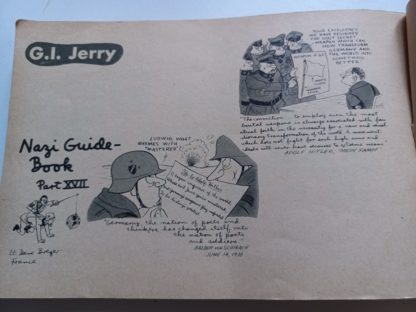 G.I. Jerry
YOUR EXCELLENCY
WE HAVE DESIGNED
THE ONLY SECRET
WEAPON WHICH CAN
NOW TRANSFORM
GERMANY AND
THE WORLD INTO
SOMETHING
BETTER
"The conviction to employ even the most
brutal weapons is always associated with fan-
atical faith in the necessity for a new and revol-
utionary transformation of the world. A movement
which does not fight for such high aims and
ideals will never have recourse to extreme means"
ADOLF HITLER, "MEIN KAMPF"
Nazi Guide-
Book
Part XVII
LUDWIG, WHAT
RHYMES WITH
"BASTERED"
"Germany, the nation of poets
and thinkers, has changed itself into
the nation of poets
and soldiers"
BALDUR VON SCHIRACH
JUNE 14, 1938
Lt. Dave Breger
France